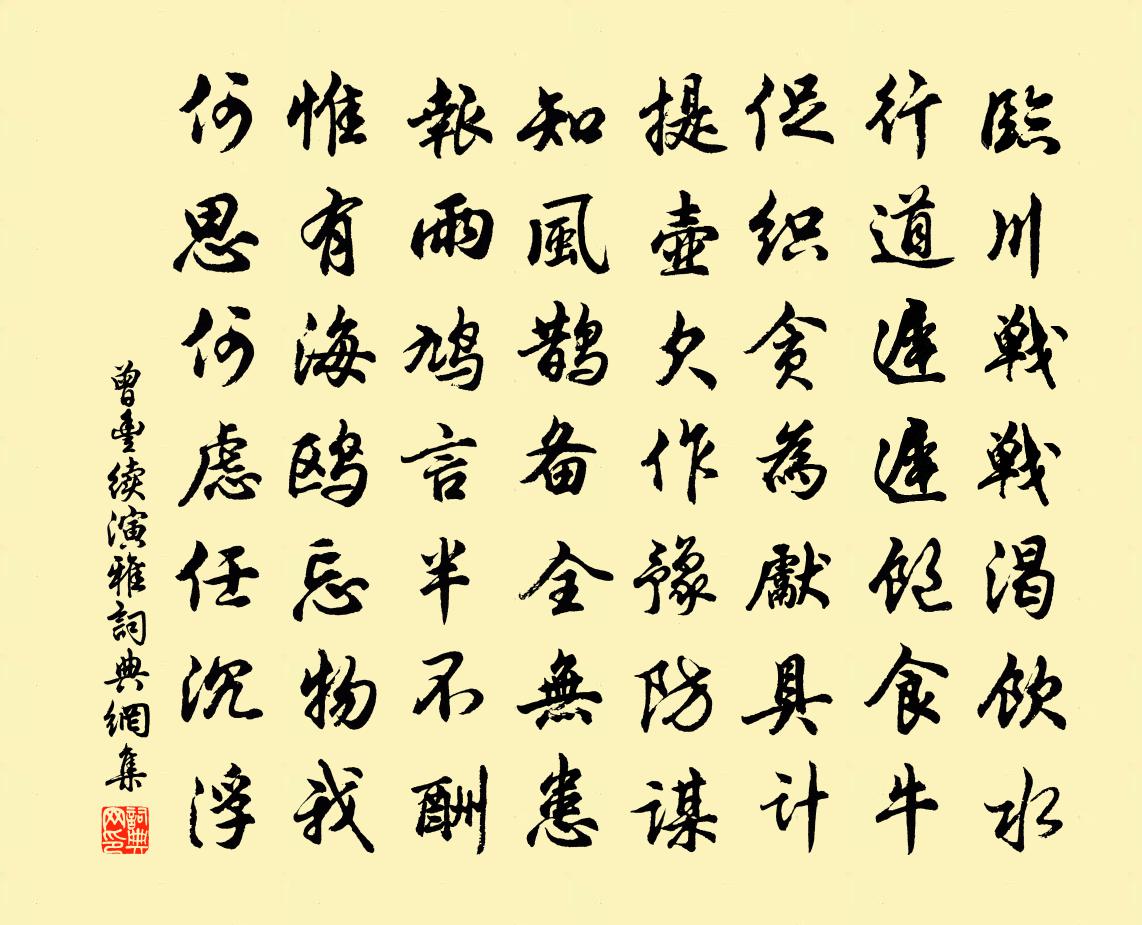 臨川戰戰渴飲水
行道遲遲飽食牛
促织貪為獻具计
提壺欠作豫防謀
知風鹊备全無患
報雨鸠言半不酬
惟有海鸥忘物我
何思何虑任沉浮
曾豊续演雅詞典網集
詞典网印